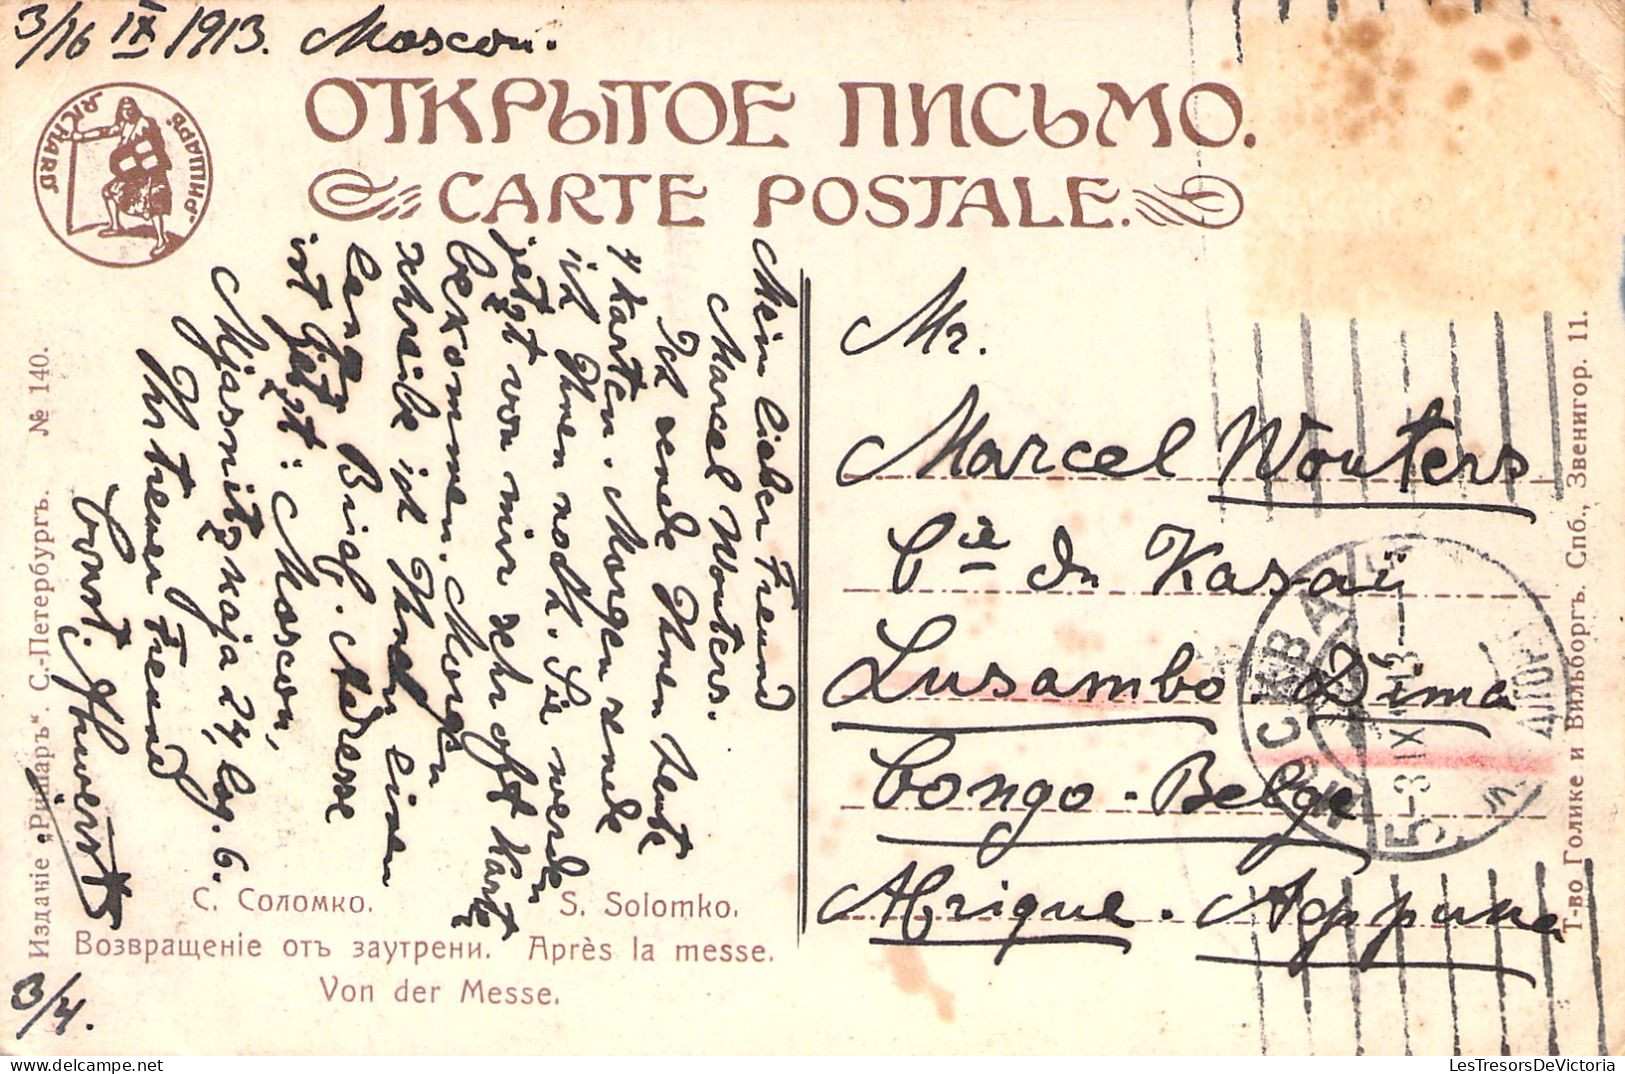 3/16 IX 1913. Moscou.
RICHARD
РИШАРЪ
ОТКРЫТОЕ ПИСЬМО.
CARTE POSTALE.
Mein lieber Freund
Marcel Wouters.
Ich sende Ihnen heute
4 Karten. Morgen sende
ich Ihnen noch. Sie werden
jetzt von mir sehr oft Karten
bekommen. Morgen
schreibe ich Ihnen einen
langen Brief. Adresse
ist jetzt: Moscou,
Mjasnitzkaja 24, log. 6.
Ihr treuer Freund
Const.
Mr.
Marcel Wouters
Cie du Kasaï
Lusambo. Dima
Congo-Belge
Afrique. Африка
МОСКВА
5-3 IX 13
С. Соломко. S. Solomko.
Возвращеніе отъ заутрени. Après la messe.
Von der Messe.
3/4.
Изданіе „Ришаръ“. С.-Петербургъ. № 140.
Т-во Голике и Вильборгъ. Спб., Звенигор. 11.
LesTresorsDeVictoria